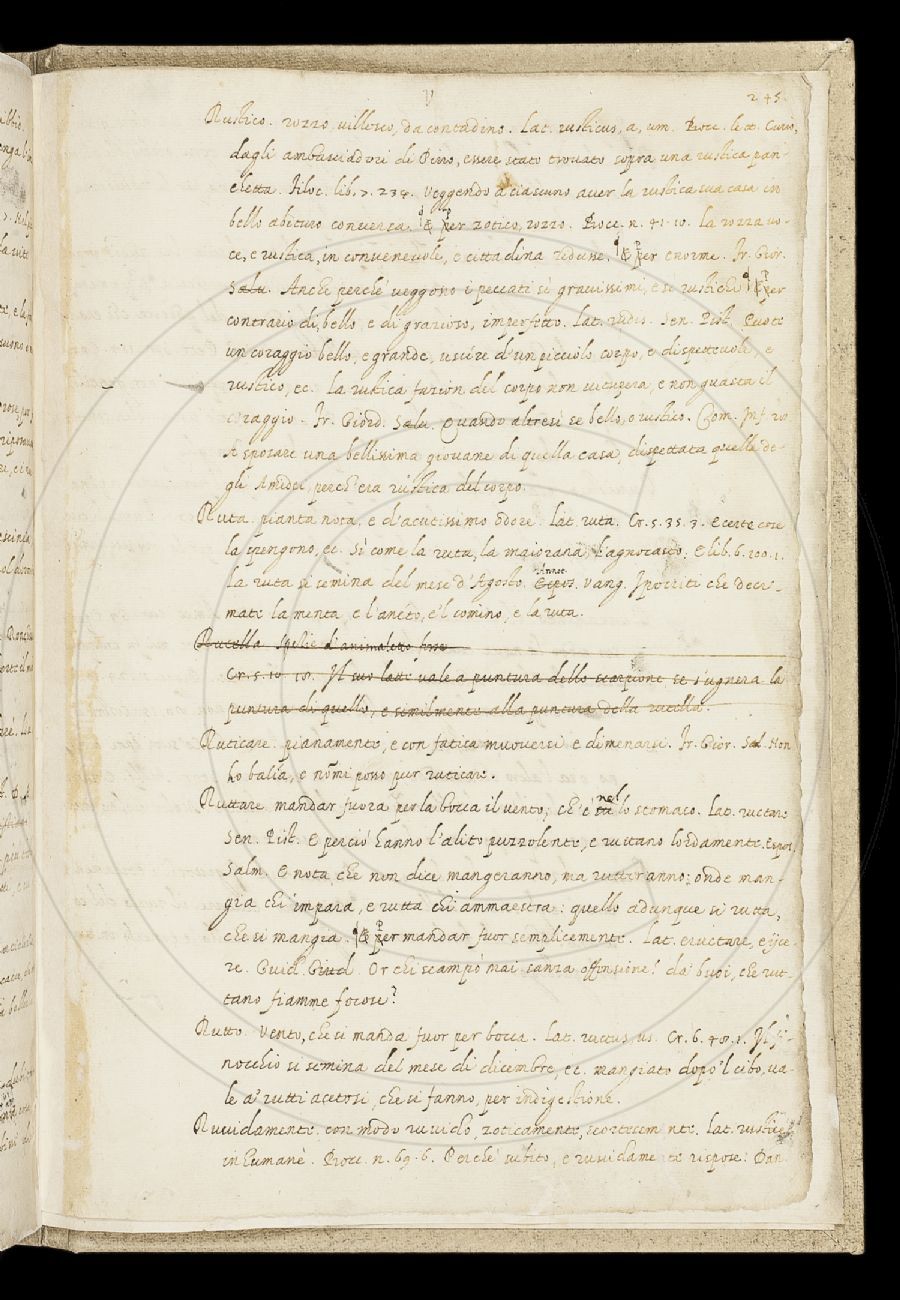 245
Rustico. rozzo, villesco, da contadino. Lat. rusticus, a, um. Bocc. let. Curio,
dagli ambasciadori di Pirro, essere stato trovato sopra una rustica pan-
eletta. Filoc. lib. 7. 234. Veggendo a ciascuno aver la rustica sua casa in
bello abituro conversa. ¶ & per zotico, rozzo. Bocc. n. 41. 10. la rozza vo-
ce, e rustica, in convenevole, e cittadina ridusse. ¶ & per enorme. Fr. Gior.
Salu. Anche perchè veggono i peccati sì gravissimi, e se rustichi ¶ & per
contrario di bello e di grazioso, imperfetto. lat. rudis. Sen. Pist. Puote
un coraggio bello, e grande, uscire d'un picciolo corpo, e dispettevole, e
rustico, ec. la rustica fazion del corpo non vitupera, e non guasta il
coraggio. Fr. Giord. Salu. Quando altresì se bello, o rustico. Com. Inf. 20
A sposare una bellissima giovane di quella casa, dispettata quella de-
gli Amidei, perch'era rustica del corpo.
Ruta. pianta nota. e d'acutissimo odore. lat. ruta. Cr. 5. 35. 3. e certe cose
la spengono, ec. sì come la ruta, la maiorana, l'agnocasto; e lib. 6. 100. 1.
la ruta si semina del mese d'Agosto. Annot. Espos. Vang. Ipocriti che deci-
mate la menta, e l'aneto, e'l comino, e la ruta.
Rutella spezie d'animaletto
Cr. 5. 10 18. Il suo latte vale a puntura dello scarpione se s'ugnera la
puntura di quello, e semilmente alla puntura della rutella.
Ruticare. pianamente, e con fatica muoversi e dimenarsi. Fr. Gior. Sal. Non
ho balía, e nommi posso pur ruticare.
Ruttare mandar fuora per la bocca il vento, ch'è nel lo stomaco. lat. ructare
Sen. Pist. E perciò hanno l'alito puzzolente, e ruttano lordamente. Espos.
Salm. E nota, che non dice mangeranno, ma rutteranno: onde man-
gia chi impara, e rutta chi ammaestra: quello adunque si rutta,
che si mangia. ¶ & per mandar fuor semplicemente. lat. eructare, eijce-
re. Guid. Giud. Or chi scampò mai sanza offensione! da' buoi, che rut-
tano fiamme focose?
Rutto. vento, che si manda fuor per bocca. lat. ructus, us. Cr. 6. 48. 1. Il fi-
nocchio si semina del mese di dicembre, ec. mangiato dopo'l cibo, va-
le a' rutti acetosi, che si fanno, per indigestione.
Ruvidamente. con modo ruvido, zoticamente, scortesemente. lat. rustice,
inhumanè. Bocc. n. 69. 6. Perchè subito, e ruvidamente rispose: Dan